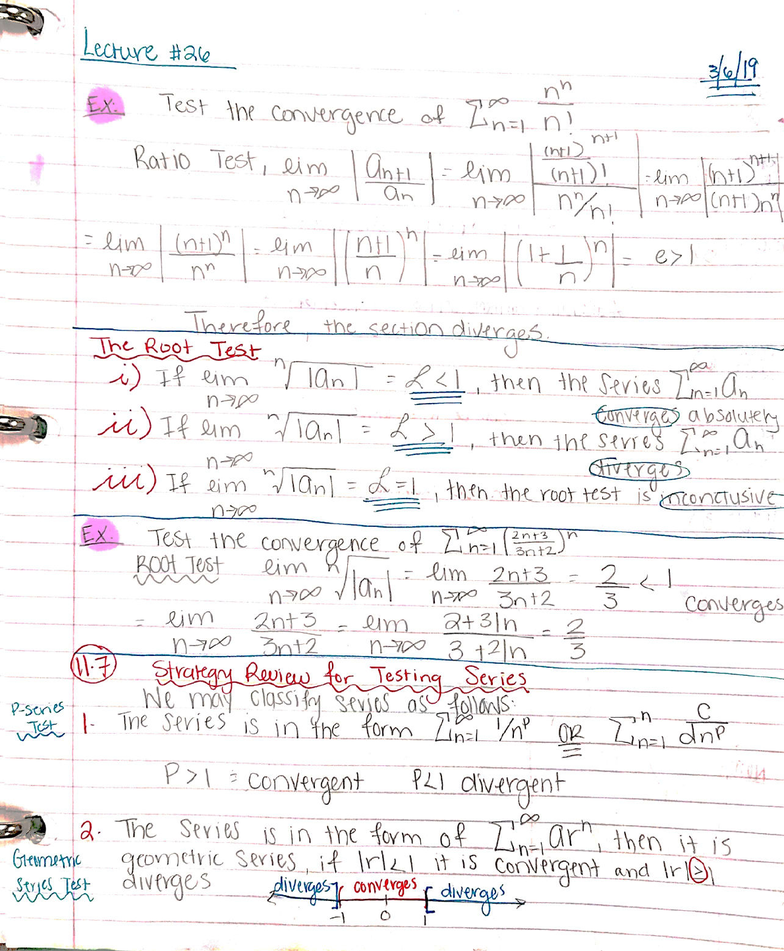 Lecture #26
3/6/19
Ex. Test the convergence of ∑_{n=1}^{∞} n^n / n!
Ratio Test, lim_{n→∞} |a_{n+1} / a_n| = lim_{n→∞} |((n+1)^{n+1} / (n+1)!) / (n^n/n!)| = lim_{n→∞} |(n+1)^{n+1} / (n+1)n^n|
= lim_{n→∞} |(n+1)^n / n^n| = lim_{n→∞} |((n+1)/n)^n| = lim_{n→∞} |(1+1/n)^n| = e>1
Therefore the section diverges.
The Root Test
i) If lim_{n→∞} ⁿ√|a_n| = L<1, then the series ∑_{n=1}^{∞} a_n
converges absolutely
ii) If lim_{n→∞} ⁿ√|a_n| = L>1, then the series ∑_{n=1}^{∞} a_n
diverges
iii) If lim_{n→∞} ⁿ√|a_n| = L=1, then the root test is inconclusive
Ex. Test the convergence of ∑_{n=1}^{∞} ((2n+3)/(3n+2))^n
ROOT Test lim_{n→∞} ⁿ√|a_n| = lim_{n→∞} (2n+3)/(3n+2) = 2/3 < 1 converges
= lim_{n→∞} (2n+3)/(3n+2) = lim_{n→∞} (2+3/n)/(3+2/n) = 2/3
11.7 Strategy Review for Testing Series
We may classify series as follows:
P-series Test
1. The series is in the form ∑_{n=1}^{∞} 1/n^p OR ∑_{n=1}^{n} c/dn^p
P>1 = convergent P<1 divergent
2. The series is in the form of ∑_{n=1}^{∞} ar^n, then it is
Geometric Series Test
geometric series, if |r|<1 it is convergent and |r|≥1
diverges
diverges converges diverges
-1 0 1